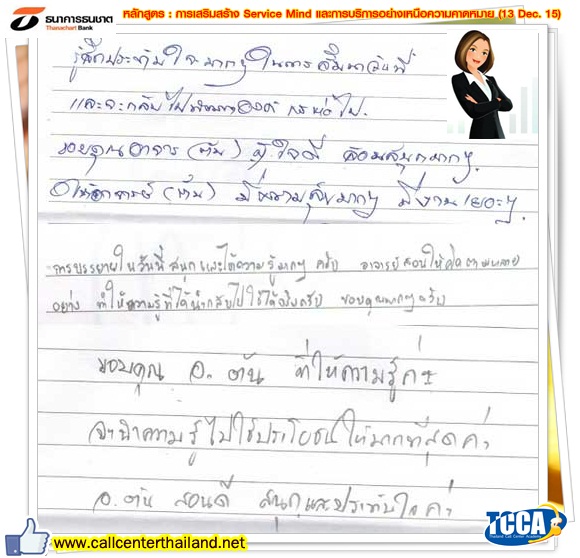 ธนาคารธนชาต
Thanachart Bank
หลักสูตร : การเสริมสร้าง Service Mind และการบริการอย่างเหนือความคาดหมาย (13 Dec. 15)
รู้สึกประทับใจมากๆ ในการสัมมนาวันนี้
และจะกลับไปพัฒนาองค์กรต่อไป.
ขอบคุณอาจารย์ (ตัน) ผู้ใจดี สอนสนุกมากๆ.
ให้อาจารย์ (ตัน) มีความสุขมากๆ มีงานเยอะๆ.
การบรรยายในวันนี้สนุกและได้ความรู้มากๆ ครับ อาจารย์สอนให้คิดตามหลาย
อย่าง ทำให้ความรู้ที่ได้นำกลับไปใช้ได้จริงครับ ขอบคุณมากๆ ครับ
ขอบคุณ อ. ตัน ที่ให้ความรู้ค่ะ
จะนำความรู้ไปใช้ประโยชน์ให้มากที่สุดค่ะ
อ. ตัน สอนดี สนุกและประทับใจค่ะ
www.callcenterthailand.net
TCCA
Thailand Call Center Academy